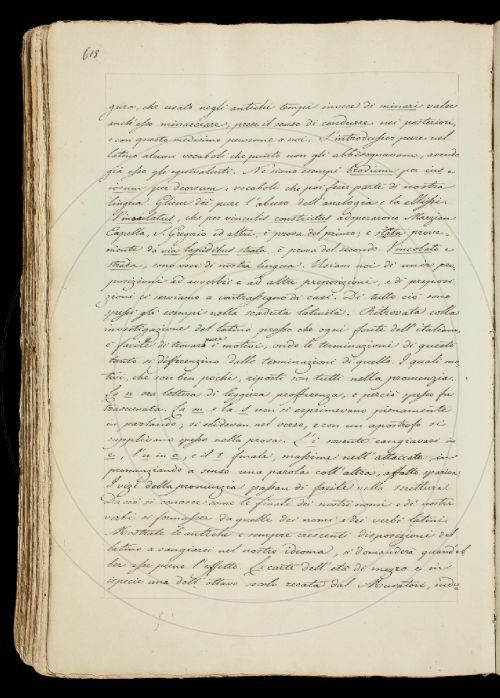 618
gura, che usato negli antichi tempi invece di minari valse
anch'esso minacciare, prese il senso di condurre nei posteriori,
e con questo medesimo pervenne a noi. S'introdussero pure nel
latino alcuni vocaboli che punto non gli abbisognavano, avendo
già esso gli equivalenti. Ne siano esempi
per deorsum, vocaboli che poi fecer parte di nostra
lingua. Glieno dei pure l'abuso dell'analogia e la ellissi.
che per vinculis constrictus adoperarono Marzian
Capella, S. Gregorio ed altri, è prova del primo; e stata prove-
niente da via lapidibus strata, è prova del secondo.
strada, sono voci di nostra lingua. Usiam noi di unire pre
posizioni ad avverbi e ad altre preposizioni, e di preposi-
zioni ci serviamo a contrassegno di casi. Di tutto ciò sono
spessi gli esempi nella scaduta latinità. Ritrovata colla
investigazione del latino presso che ogni fonte dell'italiano,
è facile di trovar pure onde le terminazioni di questo
tanto si differenzino dalle terminazioni di quello. I quali mo
tivi, che son ben pochi, riposti son tutti nella pronuncia.
La n era lettera di leggiera profferenza, e perciò spesso fu
trascurata. La m e la s non si esprimevano pienamente
in parlando, si elidevan nel verso, e con un apostrofo si
supplivano spesso nella prosa. L'i sovente cangiavasi in
e, l'u in o, e il t finale, massime nell'attaccare in
pronunziando a senso una parola coll'altra, affatto spariva.
I vizi della pronunzia passan di facile nella scrittura.
Da ciò si conosce come le finali dei nostri nomi e di nostri
verbi si formasser da quelle dei nomi e dei verbi latini.
Mostrate le antiche e sempre crescenti disposizioni del
latino a cangiarsi nel nostro idioma, si domanderà quand'eb
ber esse pieno l'effetto. Le carte dell'età di mezzo e in
ispecie una dell'ottavo secolo recata dal Muratori,